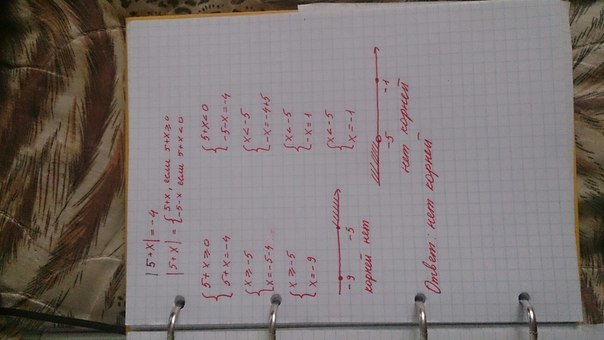 |5+x|=-4
|5+x| = { 5+x, если 5+x≥0
{ -5-x, если 5+x<0
{ 5+x≥0
{ 5+x=-4
{ x≥-5
{ x=-5-4
{ x≥-5
{ x=-9
-9 -5
корней нет
{ 5+x<0
{ -5-x=-4
{ x<-5
{ -x=-4+5
{ x<-5
{ -x=1
{ x<-5
{ x=-1
-5 -1
нет корней
Ответ: нет корней